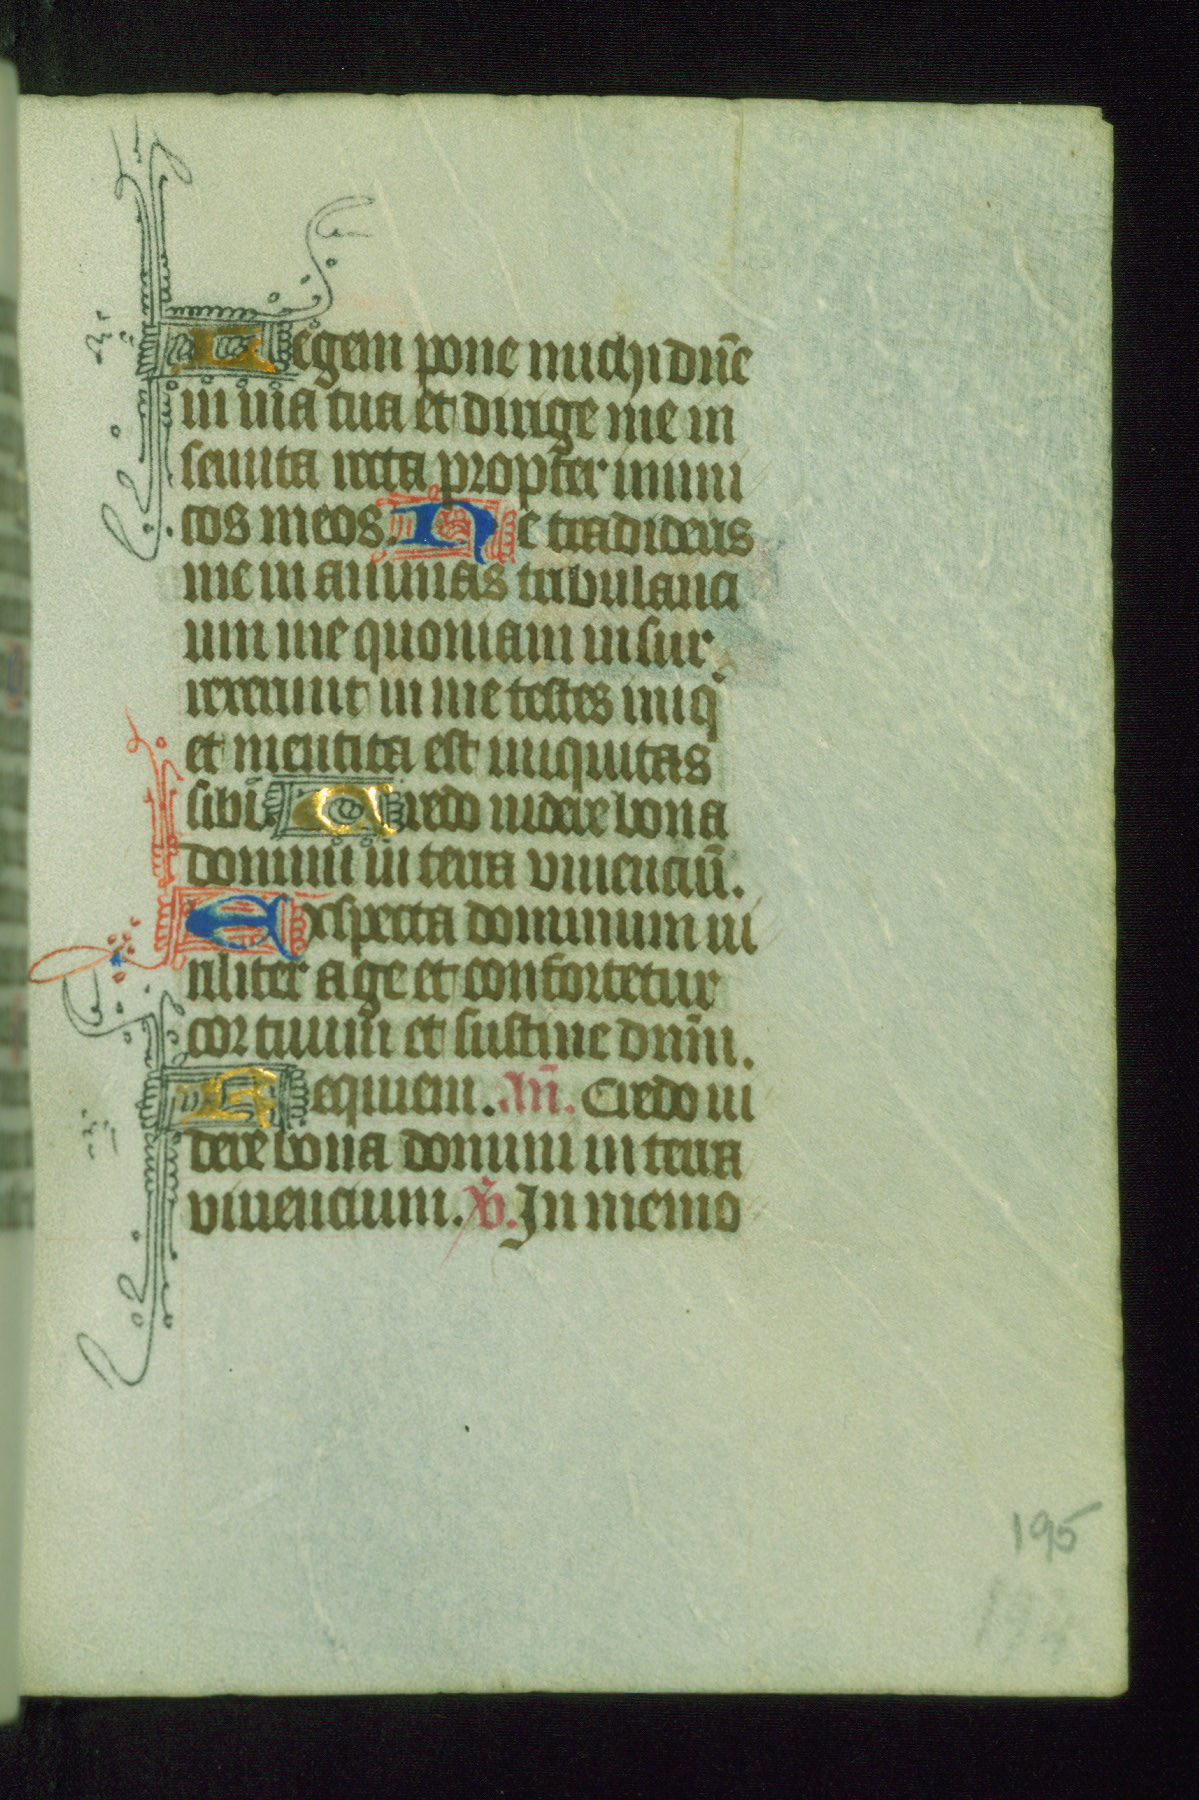 Legem pone michi dñe
in via tua et dirige me in
semita recta propter inimi
cos meos. Ne tradideris
me in animas tribulanci
um me quoniam insur
rexerunt in me testes iniq̇
et mentita est iniquitas
sibi Credo videre bona
domini in terra vivenciū.
Exspecta dominum vi
riliter age et confortetur
cor tuum et sustine dn̄m.
Requiem. An̄. Credo vi
dere bona domini in terra
vivencium. V̇. In memo
195